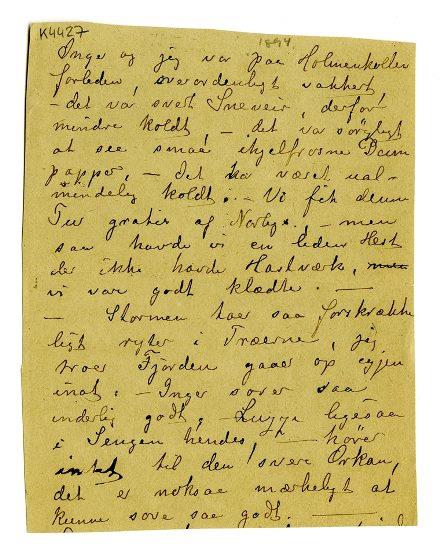 K4427
1894
Inger og jeg var paa Holmenkollen
forleden, overordenligt vakkert,
– det var svert Sneveir, derfor
mindre koldt, – det var sørgeligt
at see smaa ihjelfrosne Dom
papper, – det har været ual-
mindelig koldt. – Vi fik denne
Tur gratis af Nørbye, – men
saa havde vi en liden Hest
der ikke havde Hastværk,
vi var godt klædte. –
– Stormen taer saa forskrække
ligt ryter i Træerne, jeg
troer Fjorden gaaer op igjen
inat. – Inger sover saa
inderlig godt, – ligesaa
i Sengen hendes, – hører
intet til den svere Orkan,
det er noksaa mærkeligt at
kunne sove saa godt. –